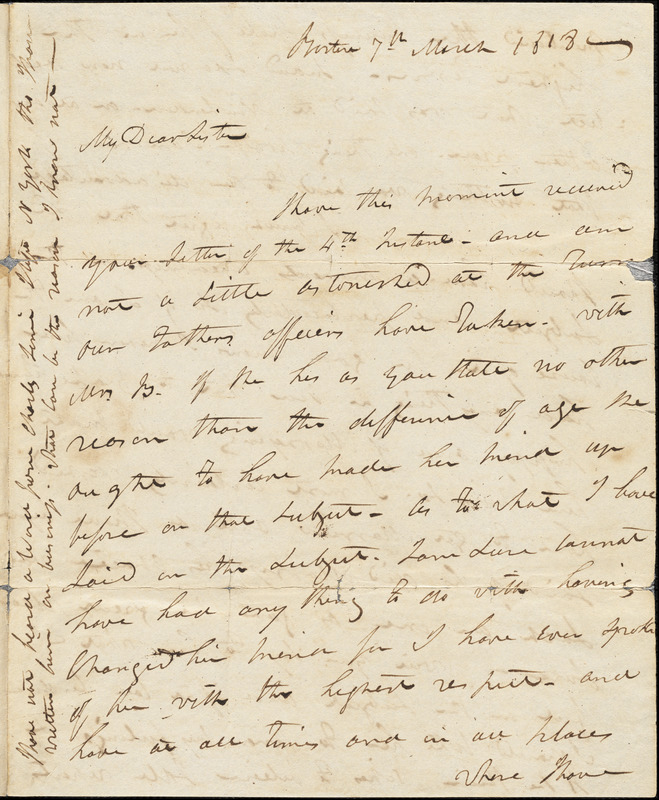 Boston 7th March 1818
My Dear Sister
I have this moment received
your Letter of the 4th Instant - and am
not a Little astonished at the Turn
our Fathers affeiers have Taken - with
Mrs B. If she has as you State no other
reason than the difference of age she
ought to have made her mind up
before on that Subject - as to what I have
Said on the Subject - I am Sure cannot
have had any thing to do with having
Changed her mind for I have ever spoke
of her with the highest respect - and
have at all times and in all places
where I have
I have not heard a word from Charly Since I left N York tho I have
written him on bussiness - what can be the reason I know not -